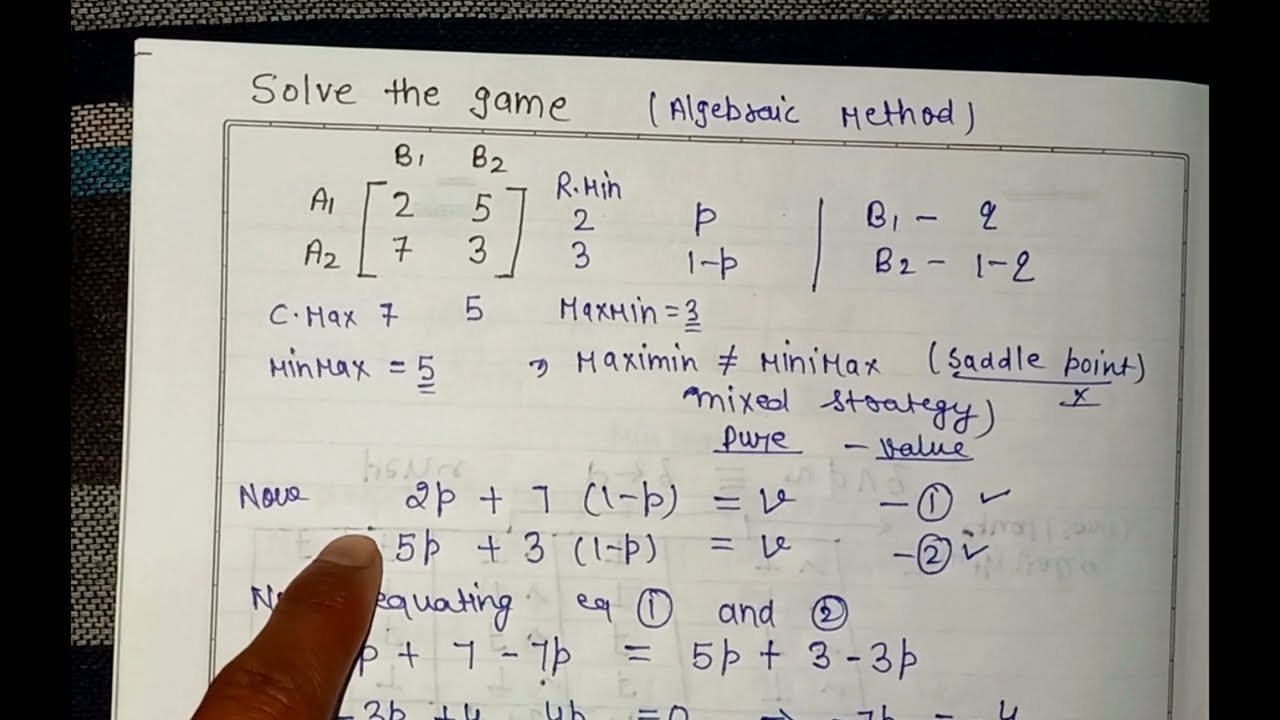 Solve the game (Algebraic Method)
B1 B2
R.Min
A1 2 5 2 p B1 - q
A2 7 3 3 1-p B2 - 1-q
C.Max 7 5 MaxMin = 3
MinMax = 5 ⇒ Maximin ≠ MiniMax (saddle point)
mixed strategy) x
pure - value
Now 2p + 7 (1-p) = v - ① ✓
5p + 3 (1-p) = v - ② ✓
equating eq ① and ②
p + 7 - 7p = 5p + 3 - 3p